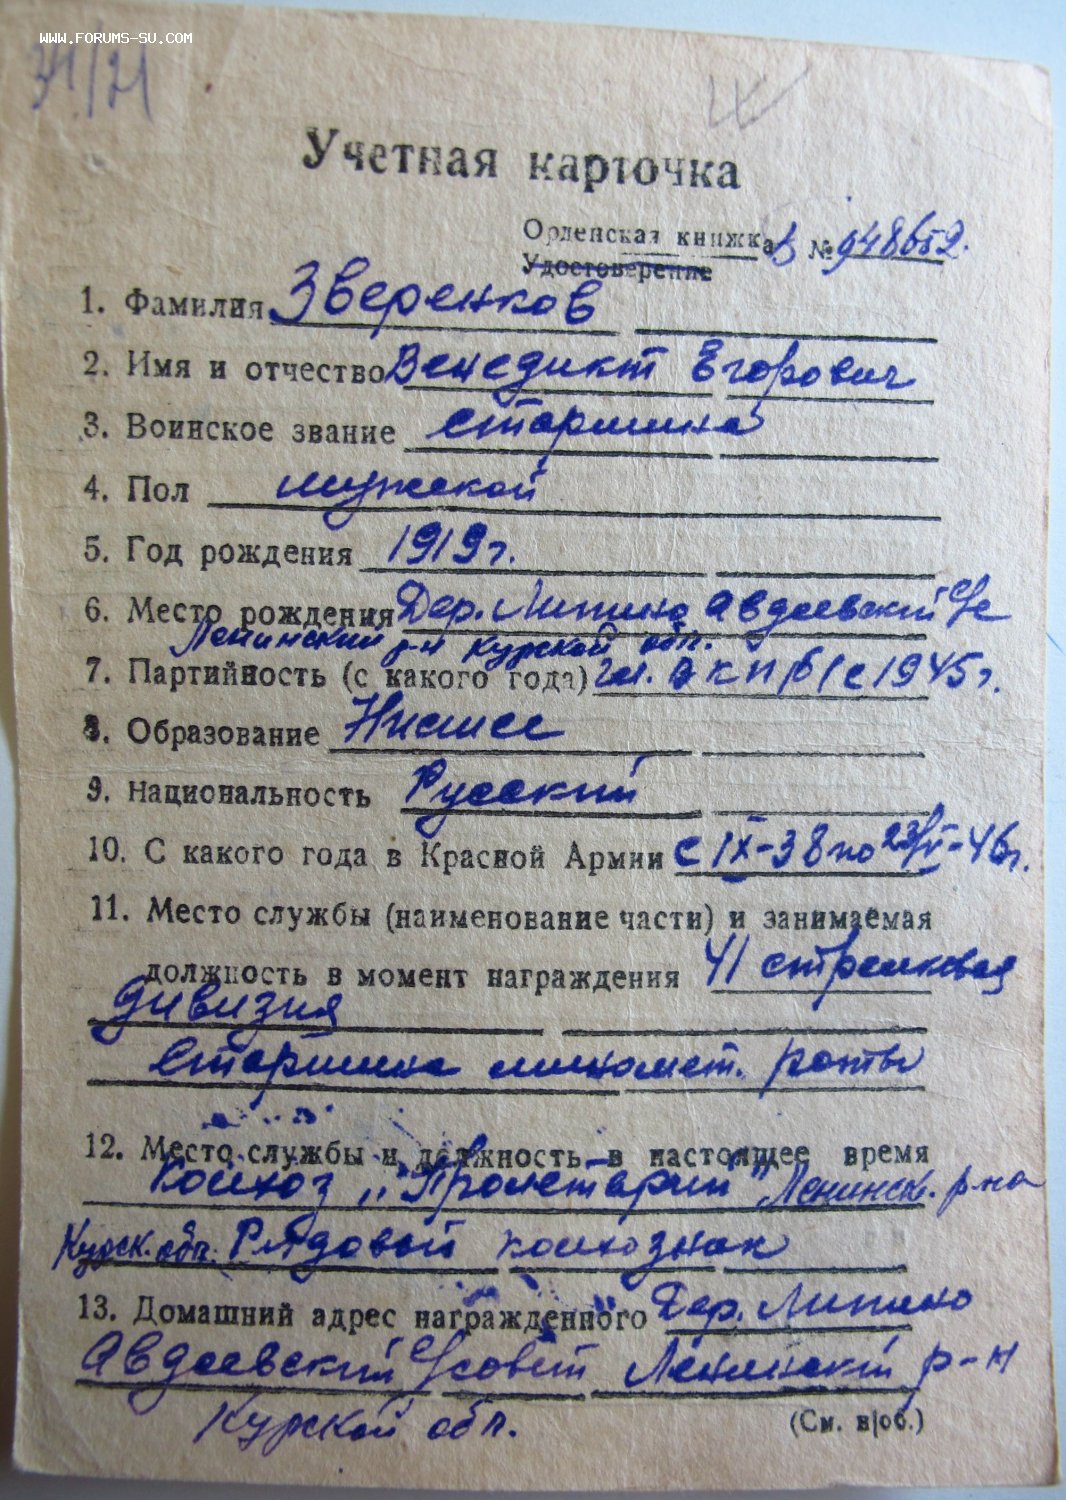 www.forums-su.com
Учетная карточка
Орденская книжка В № 948652.
Удостоверение
1. Фамилия Зверенков
2. Имя и отчество Венедикт Егорович
3. Воинское звание старшина
4. Пол мужской
5. Год рождения 1919 г.
6. Место рождения Дер. Липино Авдеевский с/с
Ленинский р-н Курской обл.
7. Партийность (с какого года) чл. ВКП(б) с 1945 г.
8. Образование Низшее
9. Национальность Русский
10. С какого года в Красной Армии с IX-38 по 23/V-46 г.
11. Место службы (наименование части) и занимаемая
должность в момент награждения 41 стрелковая
дивизия
Старшина миномет. роты
12. Место службы и должность в настоящее время
Колхоз „Пролетарий" Ленинск. р-на
Курск. обл. Рядовой колхозник
13. Домашний адрес награжденного Дер. Липино
Авдеевский с/совет Ленинский р-н
Курской обл.
(См. н/об.)